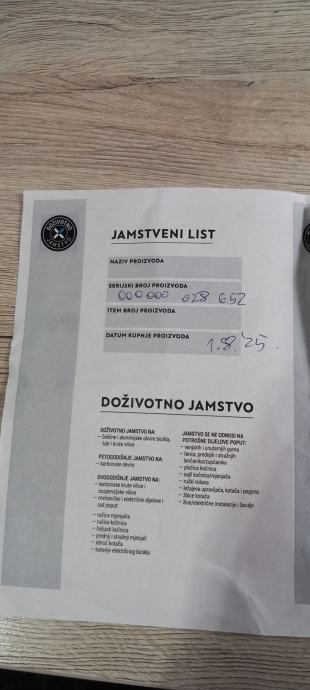 DOŽIVOTNO
JAMSTVO
JAMSTVENI LIST
NAZIV PROIZVODA
SERIJSKI BROJ PROIZVODA
000000 028 652
ITEM BROJ PROIZVODA
DATUM KUPNJE PROIZVODA
1.8.'25.
DOŽIVOTNO JAMSTVO
DOŽIVOTNO JAMSTVO NA:
– čelične i aluminijske okvire bicikla,
krute vilice
PETOGODIŠNJE JAMSTVO NA:
– karbonske okvire
DVOGODIŠNJE JAMSTVO NA:
– karbonske krute vilice i
suspenzijske vilice
– mehaničke i električne dijelove i
rad poput
– ručice mjenjača
– ručice kočnica
– čeljusti kočnica
– prednji i stražnji mjenjač
– obruč kotača
– baterije električnog bicikla
JAMSTVO SE NE ODNOSI NA
POTROŠNE DIJELOVE POPUT:
– vanjskih i unutarnjih guma
– lanca, prednjih i stražnjih
lančanika/zupčanika
– pločica kočnica
– sajli kočnica/mjenjača
– ručki volana
– ležajeva upravljača, kotača i pogona
– žbice kotača
– žice/električne instalacije i žarulje